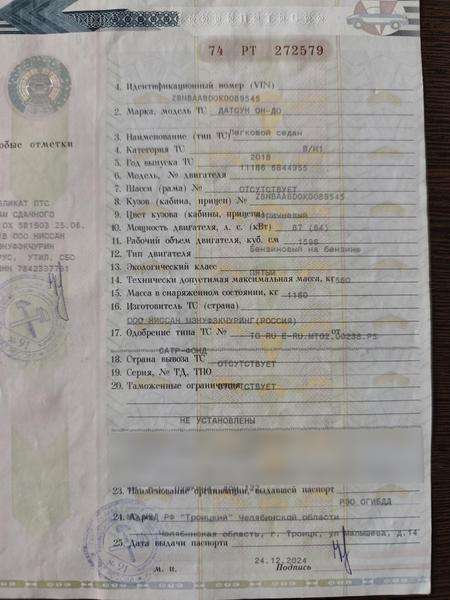 74 РТ 272579
1. Идентификационный номер (VIN)
Z8NBAABD0K0089545
2. Марка, модель ТС ДАТСУН ОН-ДО
3. Наименование (тип ТС) Легковой седан
4. Категория ТС В/М1
5. Год выпуска ТС 2018
6. Модель, № двигателя 11186 6844955
7. Шасси (рама) № ОТСУТСТВУЕТ
8. Кузов (кабина, прицеп) № Z8NBAABD0K0089545
9. Цвет кузова (кабины, прицепа) Коричневый
10. Мощность двигателя, л. с. (кВт) 87 (64)
11. Рабочий объем двигателя, куб. см 1596
12. Тип двигателя Бензиновый на бензине
13. Экологический класс ПЯТЫЙ
14. Технически допустимая максимальная масса, кг
15. Масса в снаряженном состоянии, кг 1160
16. Изготовитель ТС (страна)
ООО НИССАН МЭНУФЭКЧУРИНГ(РОССИЯ)
17. Одобрение типа ТС № ТС RU E-RU.МТ02.00238.Р5 от
САТР-ФОНД
18. Страна вывоза ТС ОТСУТСТВУЕТ
19. Серия, № ТД, ТПО
20. Таможенные ограничения ОТСУТСТВУЕТ
НЕ УСТАНОВЛЕНЫ
23. Наименование организации, выдавшей паспорт
РЭО ОГИБДД
24. Адрес МВД РФ "Троицкий" Челябинской области
Челябинская область, г. Троицк, ул Малышева, д.14
25. Дата выдачи паспорта
24.12.2024
м. п. Подпись
обые отметки
БЛИКАТ ПТС
СДАННОГО
ОХ 581903 25.06.
ООО НИССАН
НУФЭКЧУРИН
РУС, УТИЛ. СБО
ИНН 7842337791